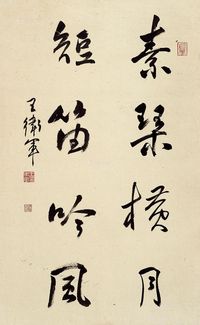 素琴橫月
短笛吟風
王衛軍